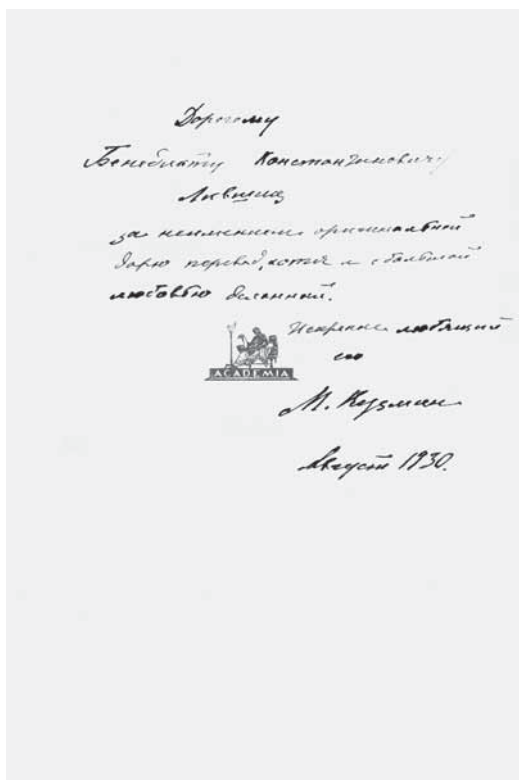 Дорогому
Бенедикту Константиновичу
Лившицу
за неимением оригинальной
дарю перевод, хотя и с большой
любовью деланный.
Искренне любящий
его
ACADEMIA
М. Кузмин
Август 1930.